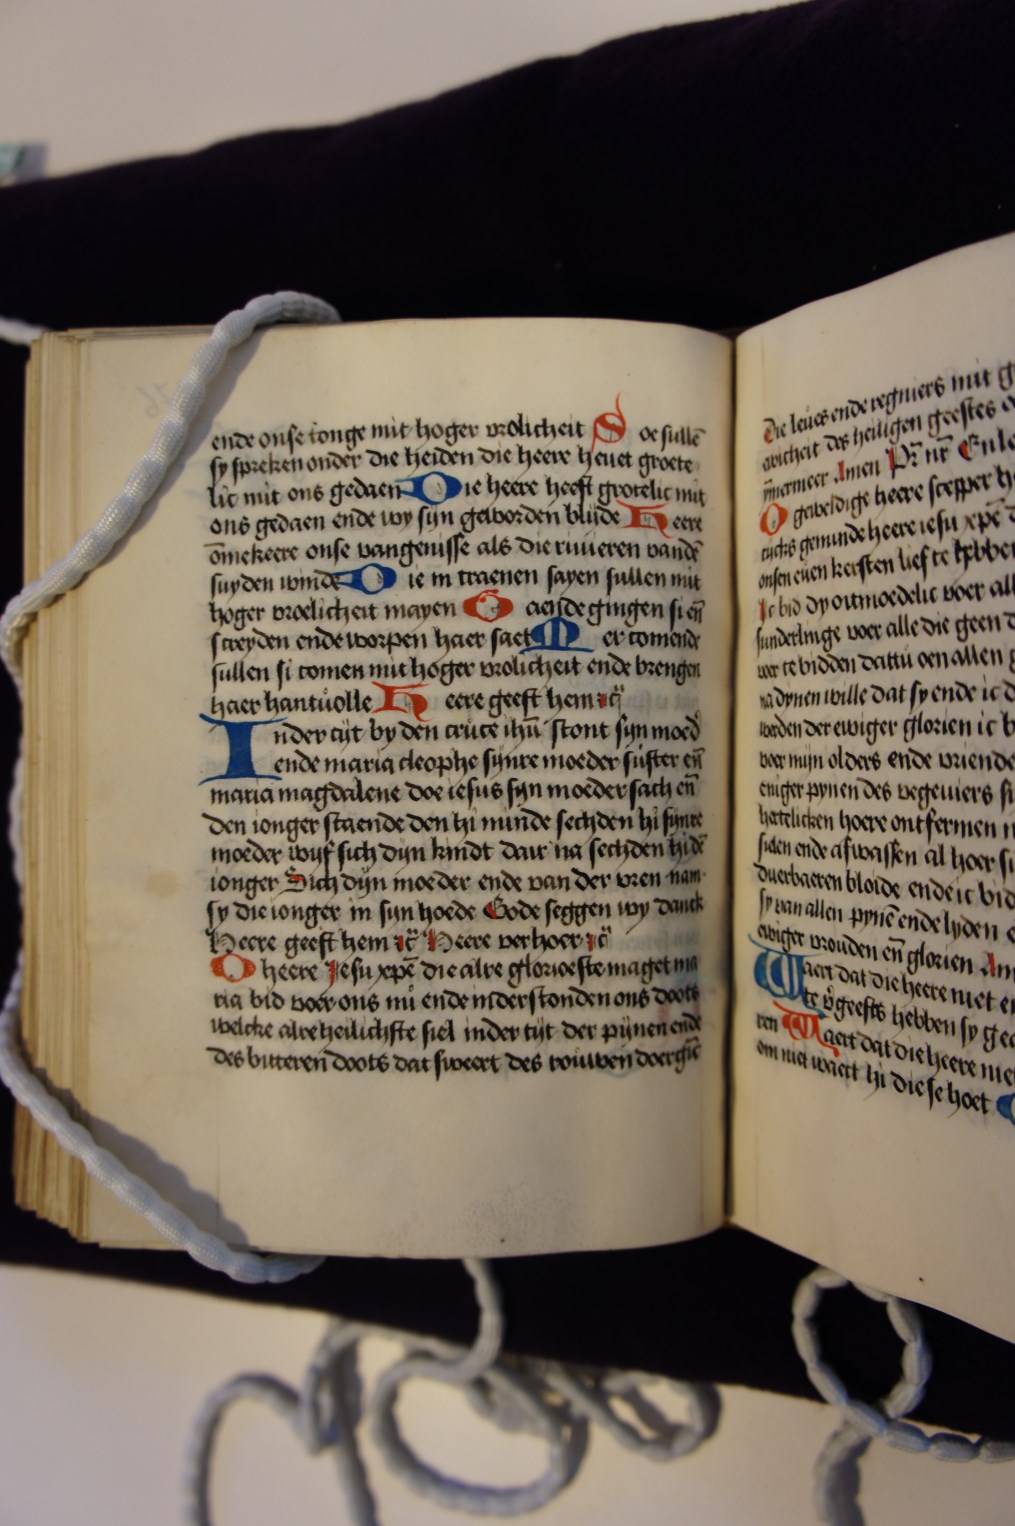 ende onse tonge mit hoger vrolicheit Soe sullē
sy spreken onder die heiden die heere heuet groete
lic mit ons gedaen Die heere heeft grotelic mit
ons gedaen ende wy sijn geworden blijde Heere
ōmekeere onse vangenisse als die riuieren vandē
suyden winde Die in traenen sayen sullen mit
hoger vroelicheit mayen Gaende gingen si eñ
screyden ende worpen haer saet Mer comende
sullen si comen mit hoger vrolicheit ende brengen
haer hantuolle Heere geeft hem
In der tijt by den cruce ihū stont sijn moed
ende maria cleophe sijnre moeder suster eñ
maria magdalene doe iesus sijn moeder sach eñ
den ionger staende den hi minde sechden hi sijnre
moeder wijf sich dijn kindt dair na sechden hi dē
ionger Sich dijn moeder ende van der vren nam
sy die ionger in sijn hoede Gode seggen wy danck
Heere geeft hem Heere verhoer
O heere Jesu xpē die alre glorioeste maget ma
ria bid voer ons nu ende inder stonden ons doots
welcke alre heilichste siel inder tijt der pijnen ende
des bitteren doots dat sweert des rouwen
Die leues ende regniers mit
des heiligen geestes
ūmermeer Amen Pr̄ nr̄
O geweldige heere scepper
geminde heere iesu xpē
onsen euen kersten lief te hebben
Ic bid dy oitmoedelic voer
sunderlinge voer alle die geen
voer te bidden dattu oen allen
na dynen wille dat sy ende ic
werden der ewiger glorien ic
voer mijn olders ende vriende
eniger pynen des vegeuiers
hertelicken hoere ontfermen
ende afwassen al hoer
duerbaeren bloide ende ic bid
sy van allen pynē ende lyden
ewiger vrouden eñ glorien
Waert dat die heere niet
hebben sy
ren Waert dat die heere
om niet waect hi die